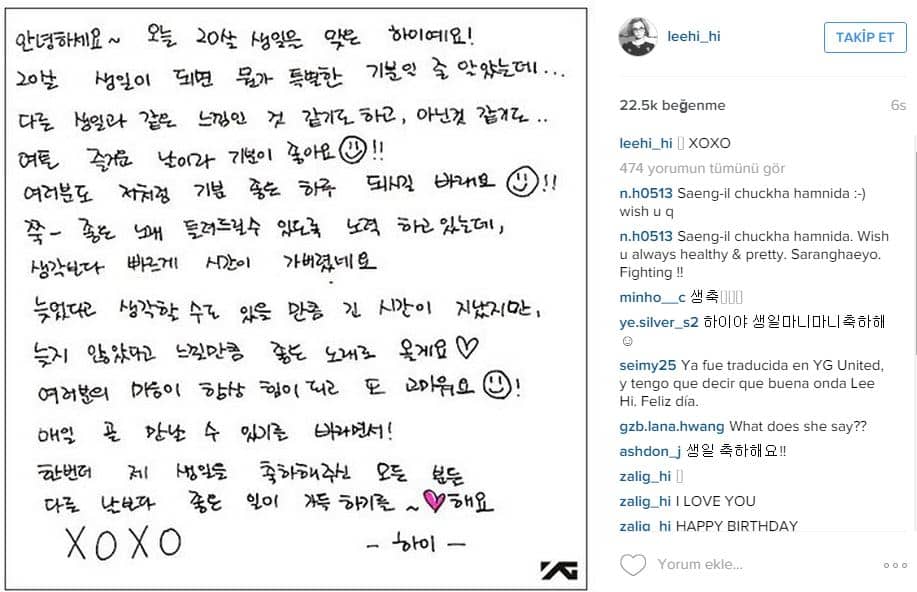 안녕하세요~ 오늘 20살 생일은 맞은 하이예요!
20살 생일이 되면 뭔가 특별한 기분인 줄 알았는데...
다른 생일과 같은 느낌인 것 같기도 하고, 아닌것 같기도..
여튼 즐거운 날이라 기분이 좋아요!!
여러분도 저처럼 기분 좋은 하루 되시길 바래요!!
쭉- 좋은 노래 들려드릴수 있도록 노력 하고있는데,
생각보다 빠르게 시간이 가버렸네요
늦었다고 생각할 수도 있을 만큼 긴 시간이 지났지만,
늦지 않았다고 느낄만큼 좋은 노래로 올게요♡
여러분의 마음이 항상 힘이되고 또 고마워요!
매일 곧 만날 수 있기를 바라면서!
한번더 제 생일을 축하해주신 모든 분들
다른 날보다 좋은 일이 가득 하기를~ ♥해요
XOXO - 하이 -
YG
leehi_hi
TAKİP ET
22.5k beğenme 6s
leehi_hi XOXO
474 yorumun tümünü gör
n.h0513 Saeng-il chuckha hamnida :-)
wish u q
n.h0513 Saeng-il chuckha hamnida. Wish
u always healthy & pretty. Saranghaeyo.
Fighting !!
minho__c 생축
ye.silver_s2 하이야 생일마니마니축하해
☺
seimy25 Ya fue traducida en YG United,
y tengo que decir que buena onda Lee
Hi. Feliz día.
gzb.lana.hwang What does she say??
ashdon_j 생일 축하해요!!
zalig_hi
zalig_hi I LOVE YOU
zalig_hi HAPPY BIRTHDAY
Yorum ekle...